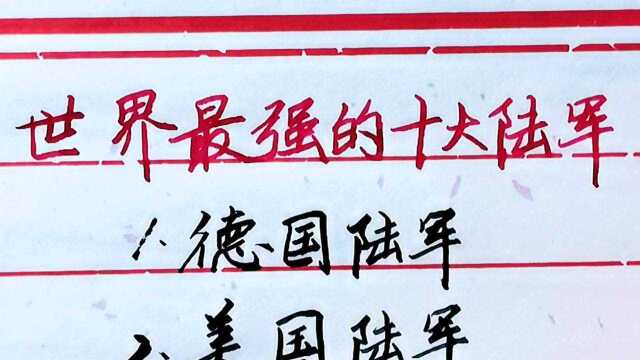 世界最强的十大陆军
1.德国陆军
2.美国陆军